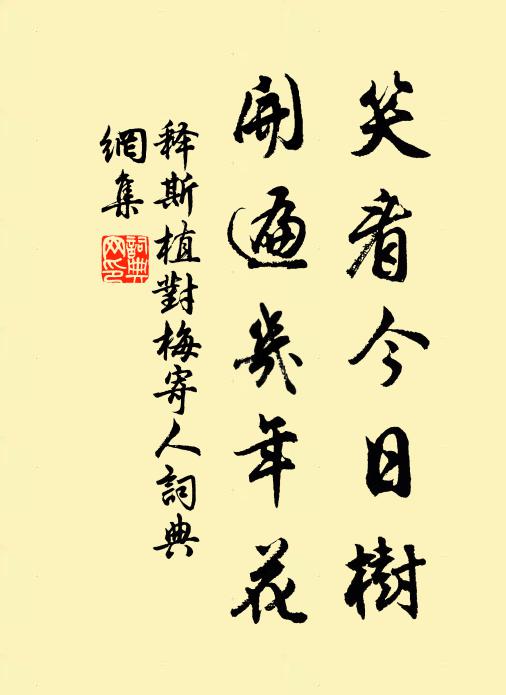 笑看今日樹
開遍幾年花
释斯植對梅寄人詞典
網集
詞典
网印